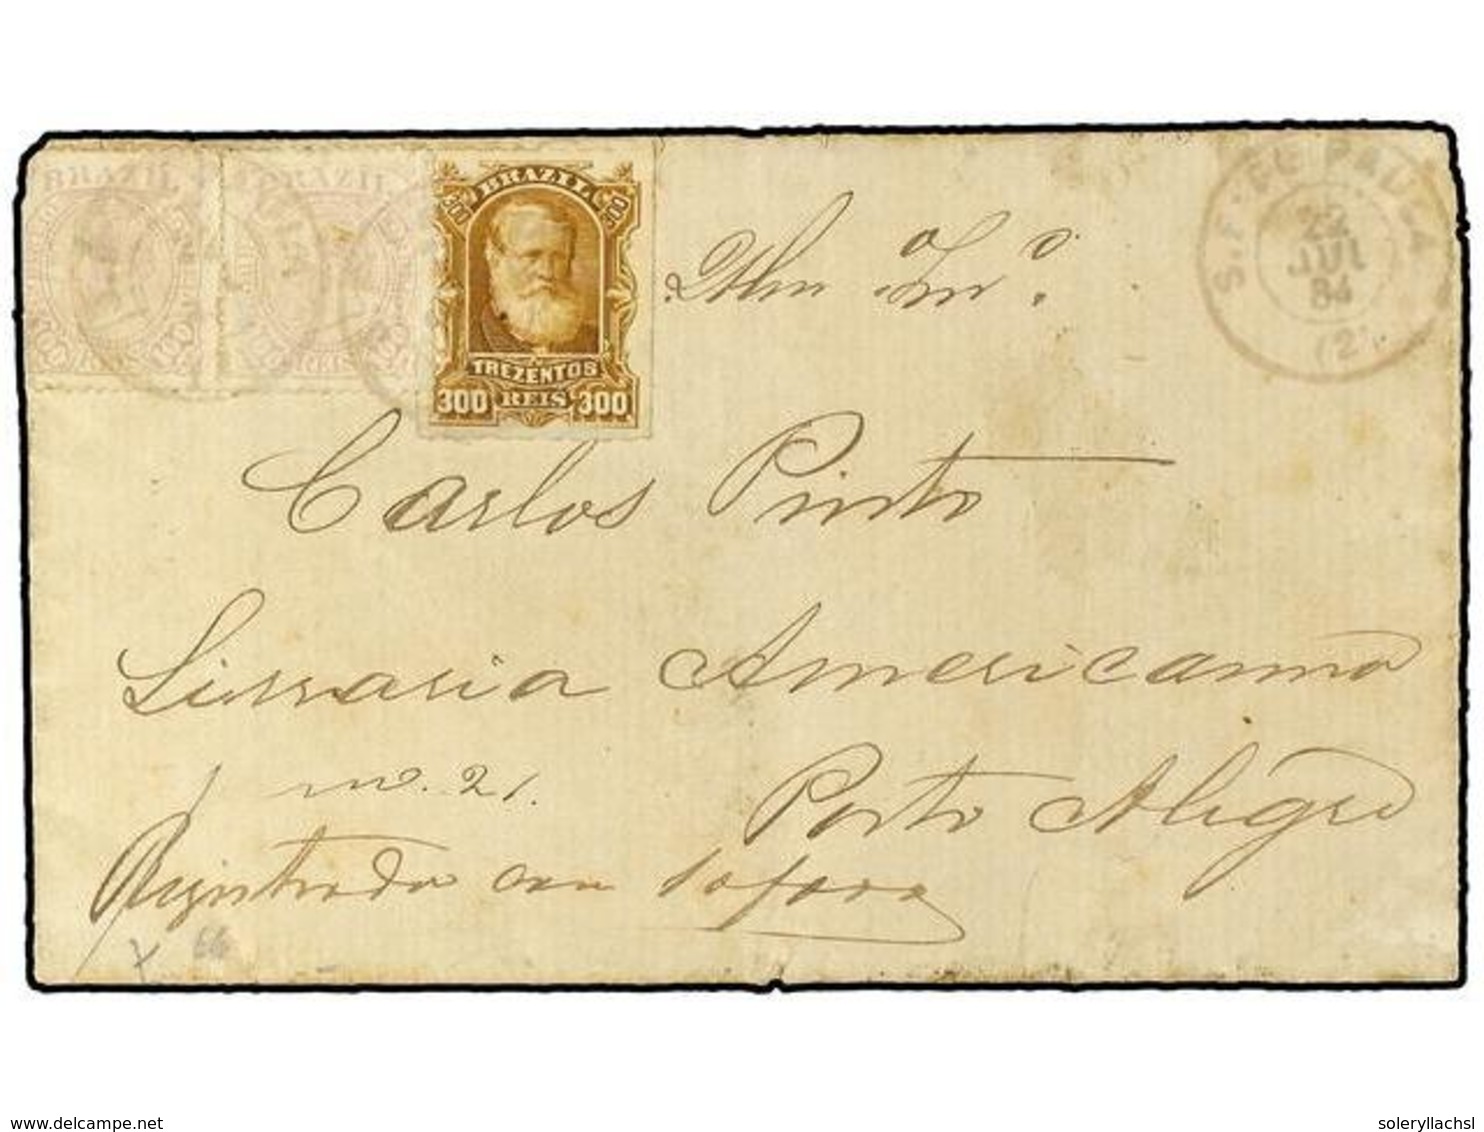 BRAZIL BRAZIL BRAZIL
300 300
TREZENTOS
300 REIS 300
100 REIS 100
S. F. DE PAULA
22
JUL
84
(2)
Illmo Snr.
Carlos Pinto
Livraria Americanna
no. 21.
Porto Alegre
Registrada com
delcampe.net
soleryllachsl